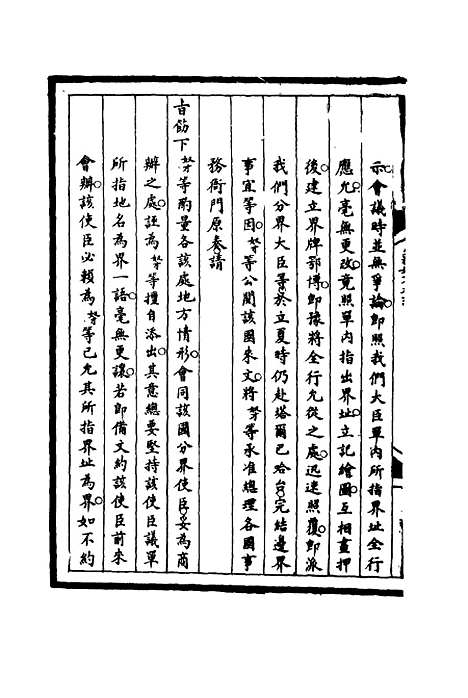 示會議時並無爭論即照我們大臣單內所指界址全行
應允毫無更改竟照單內指出界址立記繪圖互相畫押
後建立界牌鄂博即豫將全行允從之處迅速照覆即派
我們分界大臣等於立夏時仍赴塔爾巴哈台完結邊界
事宜等因奴才等公閱該國來文將奴才等承准總理各國事
務衙門原奏請
旨飭下奴才等酌量各該處地方情形會同該國分界使臣妥為商
辦之處誣為奴才等擅自添出其意總要堅持該使臣議單
所指地名為界一語毫無更讓若即備文約該使臣前來
會辦該使臣必賴為奴才等已允其所指界址為界如不約